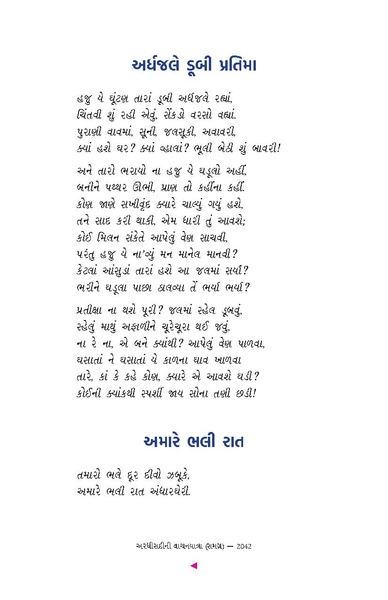 અર્ધજલે ડૂબી પ્રતિમા
હજુ યે ઘૂંટણ તારાં ડૂબી અર્ધજલે રહ્યાં,
ચિંતવી શું રહી એવું, સેંકડો વરસો વહ્યાં.
પુરાણી વાવમાં, સૂની, જલસૂકી, અવાવરી,
ક્યાં હશે ઘર? ક્યાં વ્હાલાં? ભૂલી બેઠી શું બાવરી!
અને તારો ભરાયો ના હજુ યે ઘડૂલો અહીં,
બનીને પથ્થર ઊભી, પ્રાણ તો કહીંના કહીં.
કોણ જાણે સખીવૃંદ ક્યારે ચાલ્યું ગયું હશે,
તને સાદ કરી થાકી, એમ ધારી તું આવશે;
કોઈ મિલન સંકેતે આપેલું વેણ સાચવી,
પરંતુ હજુ યે ના'વ્યું મન માનેલ માનવી?
કેટલાં આંસુડાં તારાં હશે આ જલમાં સર્યાં?
ભરીને ઘડૂલા પાછા ઠાલવ્યા તેં ભર્યા ભર્યા?
પ્રતીક્ષા ના થશે પૂરી? જલમાં સ્હેલ ડૂબવું,
સ્હેલું માથું અફાળીને ચૂરેચૂરા થઈ જવું,
ના રે ના, એ બને ક્યાંથી? આપેલું વેણ પાળવા,
ઘસાતાં ને ઘસાતાં યે કાળના ઘાવ ખાળવા
તારે, કાં કે કહે કોણ, ક્યારે એ આવશે ઘડી?
કોઈની ક્યાંકથી સ્પર્શી જાય સોના તણી છડી!
અમારે ભલી રાત
તમારો ભલે દૂર દીવો ઝબૂકે,
અમારે ભલી રાત અંધારઘેરી.
અરધીસદીની વાચનયાત્રા (સમગ્ર) — 2042